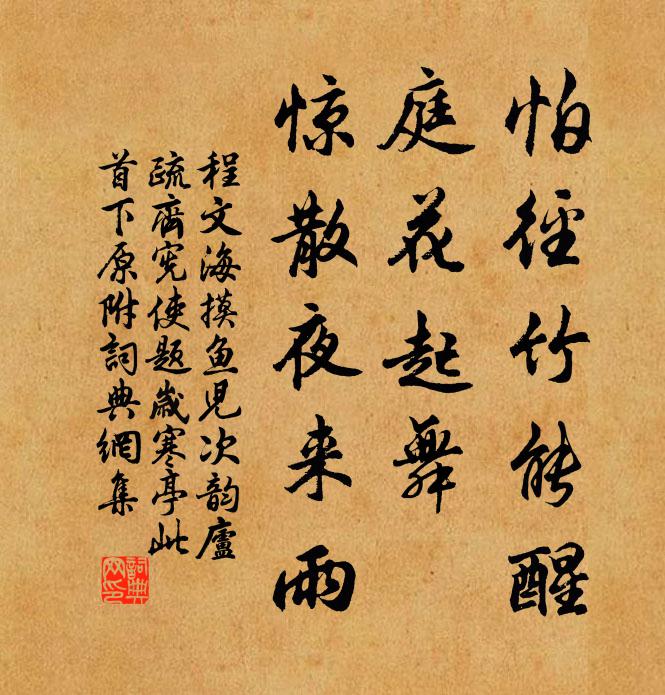 怕径竹能醒
庭花起舞
惊散夜来雨
程文海摸鱼儿次韵廬
疏齋宪使题歲寒亭此
首下原附詞典網集
詞典
网印